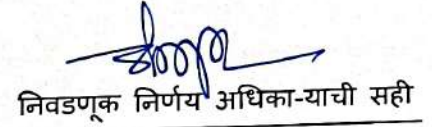 निवडणूक निर्णय अधिका-याची सही